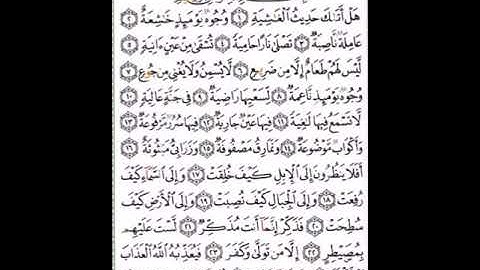 هَلْ أَتَىٰكَ حَدِيثُ ٱلْغَٰشِيَةِ ١ وُجُوهٌ يَوْمَئِذٍ خَٰشِعَةٌ ٢
عَامِلَةٌ نَّاصِبَةٌ ٣ تَصْلَىٰ نَارًا حَامِيَةً ٤ تُسْقَىٰ مِنْ عَيْنٍ ءَانِيَةٍ ٥
لَّيْسَ لَهُمْ طَعَامٌ إِلَّا مِن ضَرِيعٍ ٦ لَّا يُسْمِنُ وَلَا يُغْنِي مِن جُوعٍ ٧
وُجُوهٌ يَوْمَئِذٍ نَّاعِمَةٌ ٨ لِّسَعْيِهَا رَاضِيَةٌ ٩ فِي جَنَّةٍ عَالِيَةٍ ١٠
لَّا تَسْمَعُ فِيهَا لَٰغِيَةً ١١ فِيهَا عَيْنٌ جَارِيَةٌ ١٢ فِيهَا سُرُرٌ مَّرْفُوعَةٌ ١٣
وَأَكْوَابٌ مَّوْضُوعَةٌ ١٤ وَنَمَارِقُ مَصْفُوفَةٌ ١٥ وَزَرَابِيُّ مَبْثُوثَةٌ ١٦
أَفَلَا يَنظُرُونَ إِلَى ٱلْإِبِلِ كَيْفَ خُلِقَتْ ١٧ وَإِلَى ٱلسَّمَآءِ كَيْفَ
رُفِعَتْ ١٨ وَإِلَى ٱلْجِبَالِ كَيْفَ نُصِبَتْ ١٩ وَإِلَى ٱلْأَرْضِ كَيْفَ
سُطِحَتْ ٢٠ فَذَكِّرْ إِنَّمَآ أَنتَ مُذَكِّرٌ ٢١ لَّسْتَ عَلَيْهِم
بِمُصَيْطِرٍ ٢٢ إِلَّا مَن تَوَلَّىٰ وَكَفَرَ ٢٣ فَيُعَذِّبُهُ ٱللَّهُ ٱلْعَذَابَ